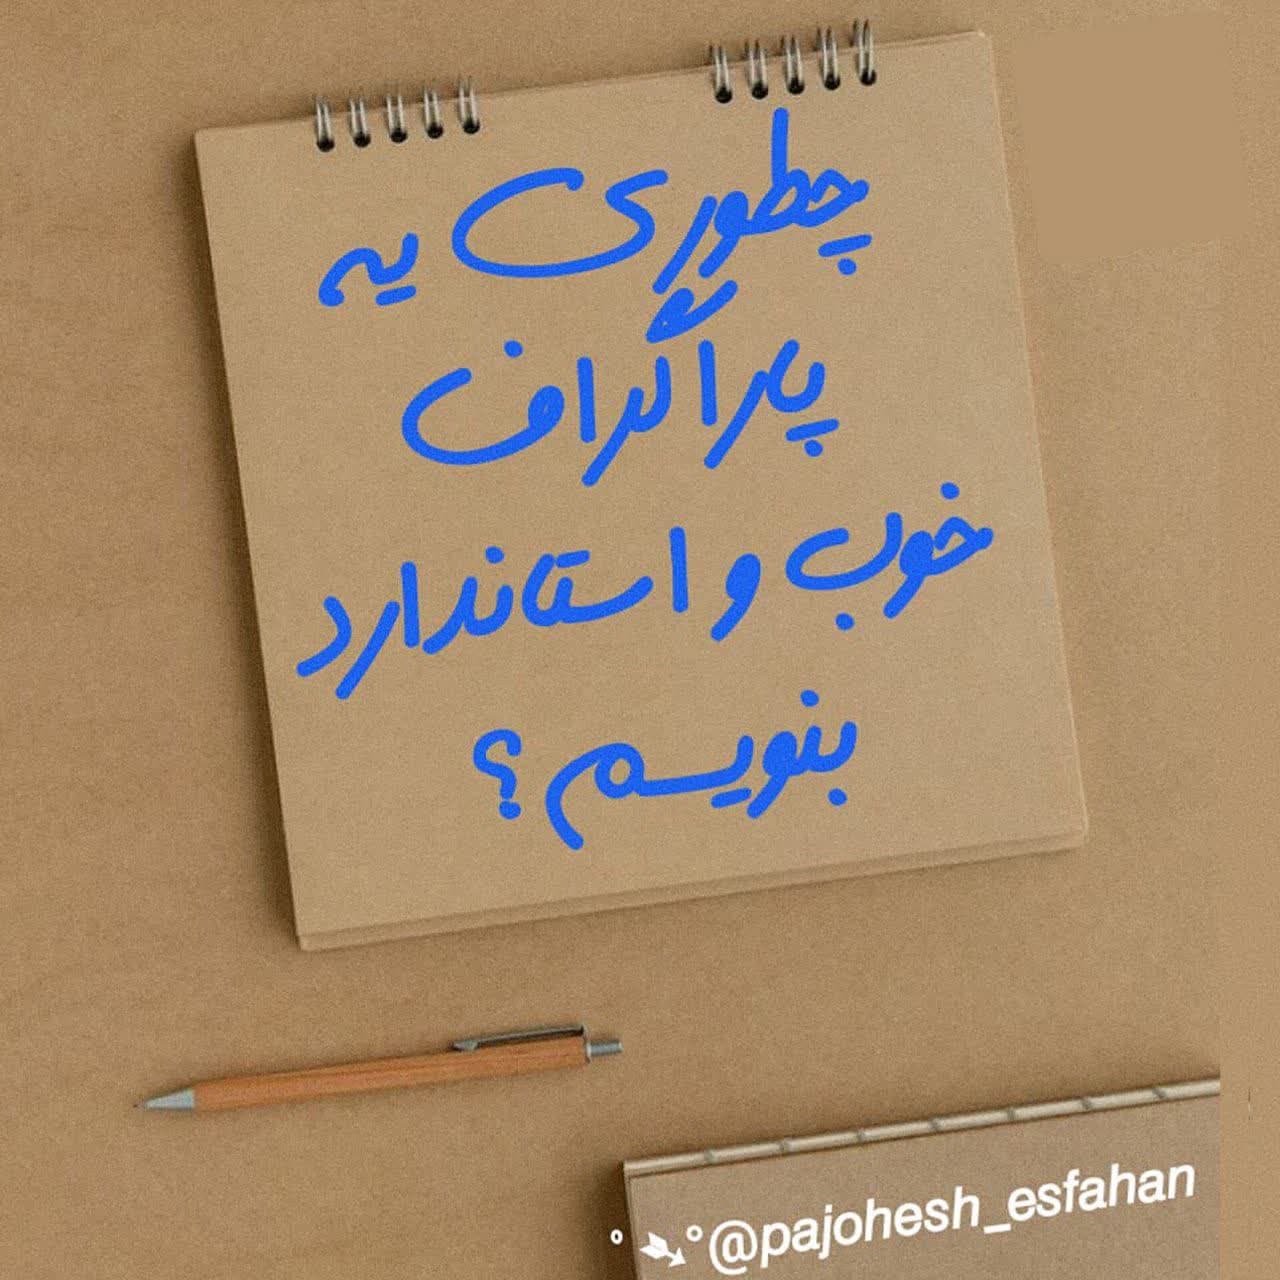 چطوری یه
پاراگراف
خوب و استاندارد
بنویسم؟
@pajohesh_esfahan